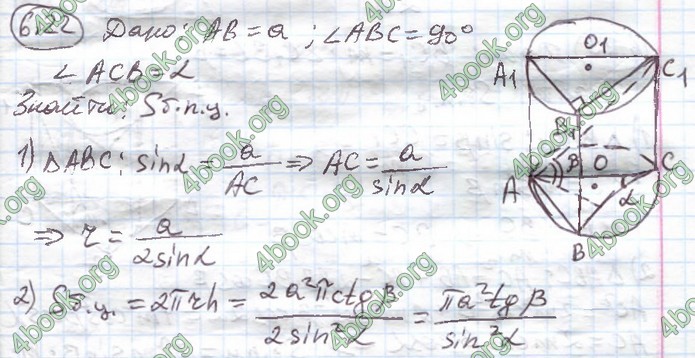 6.22 Дано: AB = a; ∠ABC = 90°
∠ACB = α
Знайти: Sб.п.ц.
1) △ABC: sinα = a/AC ⇒ AC = a/sinα
⇒ r = a/2sinα
2) Sб.ц. = 2πrh = 2a²πctgβ/2sin²α = πa²tgβ/sin²α
A1 O1 C1
B1
A β O C
α
B
4book.org